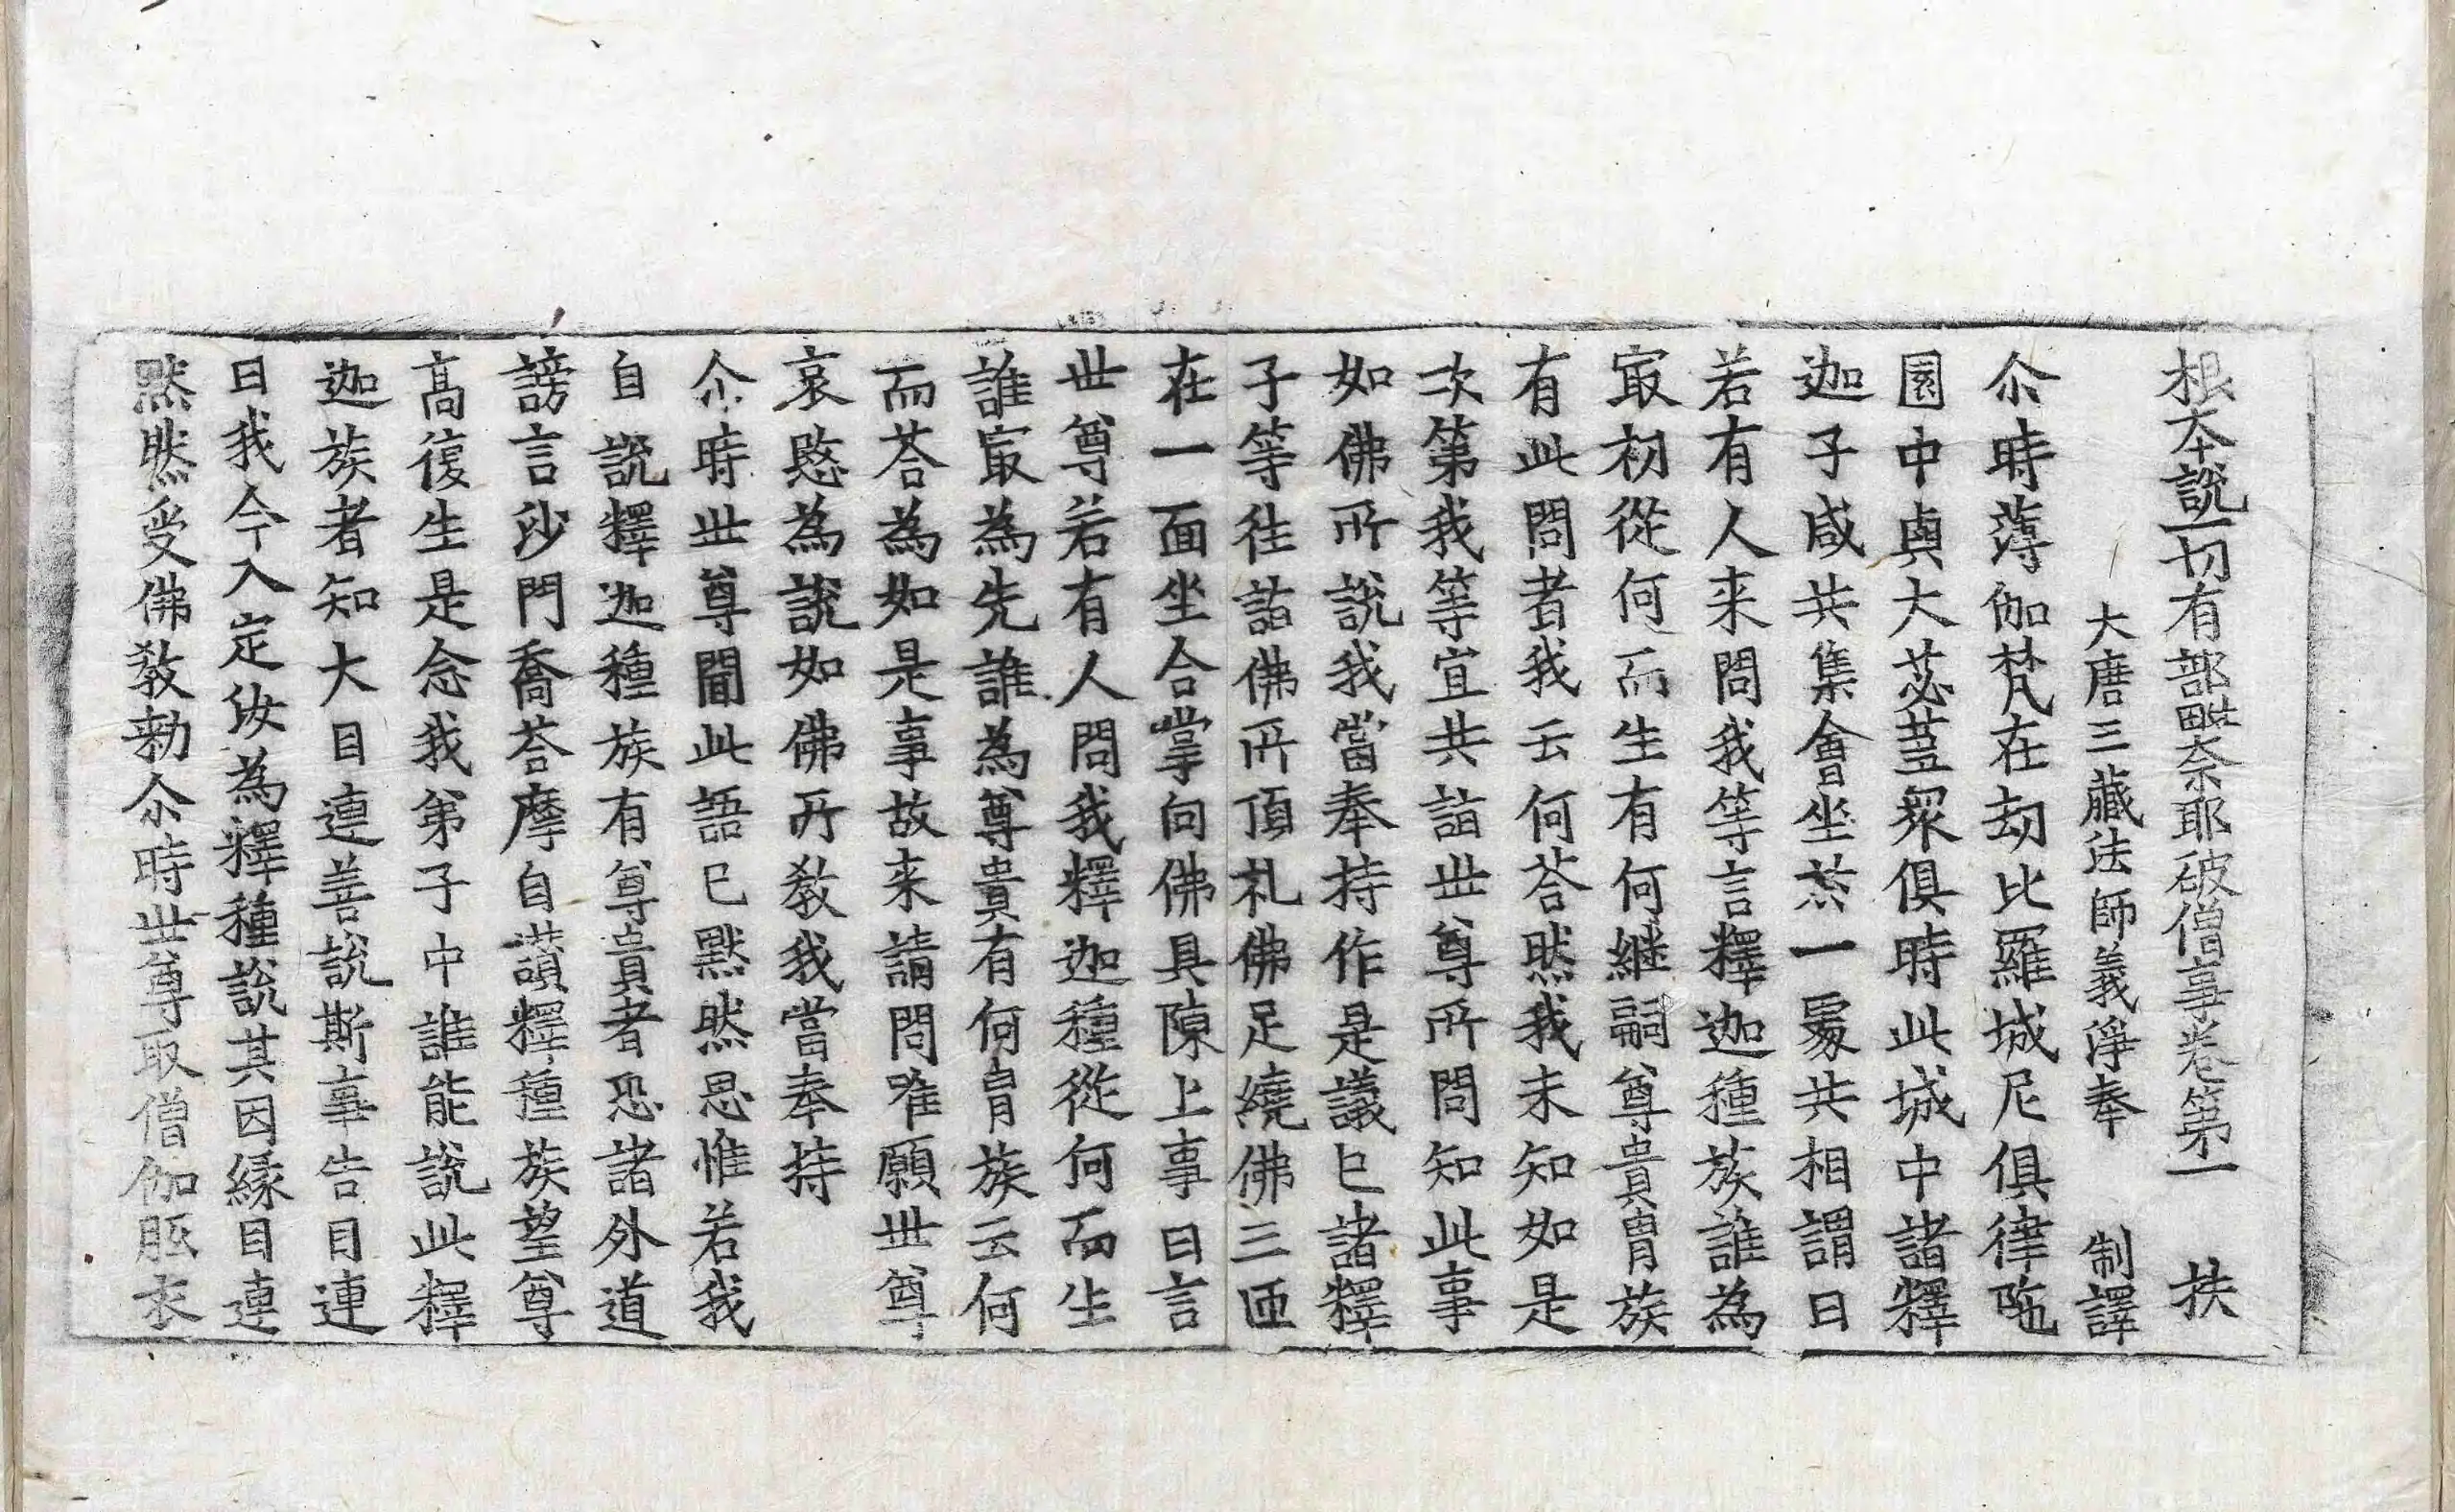 根本說一切有部毗奈耶破僧事卷第一　扶
大唐三藏法師義淨奉　制譯
尒時薄伽梵在劫比羅城尼俱律陁
園中與大苾蒭衆俱時此城中諸釋
迦子咸共集會坐於一處共相謂曰
若有人来問我等言釋迦種族誰為
㝡初從何而生有何継嗣尊貴胄族
有此問者我云何荅然我未知如是
次第我等宜共詣世尊所問知此事
如佛所說我當奉持作是議已諸釋
子等往詣佛所頂礼佛足繞佛三匝
在一面坐合掌向佛具陳上事曰言
世尊若有人問我釋迦種從何而生
誰㝡為先誰為尊貴有何胄族云何
而荅為如是事故来請問唯願世尊
哀愍為說如佛所教我當奉持
尒時世尊聞此語已黙然思惟若我
自說釋迦種族有尊貴者恐諸外道
謗言沙門喬荅摩自讃釋種族望尊
高復生是念我弟子中誰能說此釋
迦族者知大目連善說斯事告目連
曰我今入定汝為釋種說其因縁目連
黙然受佛教勅尒時世尊取僧伽胝衣